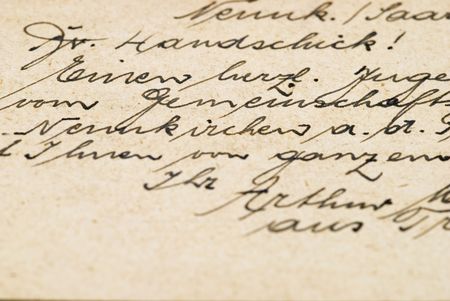 Neunk. / Saar
Dr. Handschick!
Einen herzl. Juge
vom Gemeinschafts
Neunkirchen a. d. S
t Ihnen von ganzem
Ihr
Arthur M
aus Tr